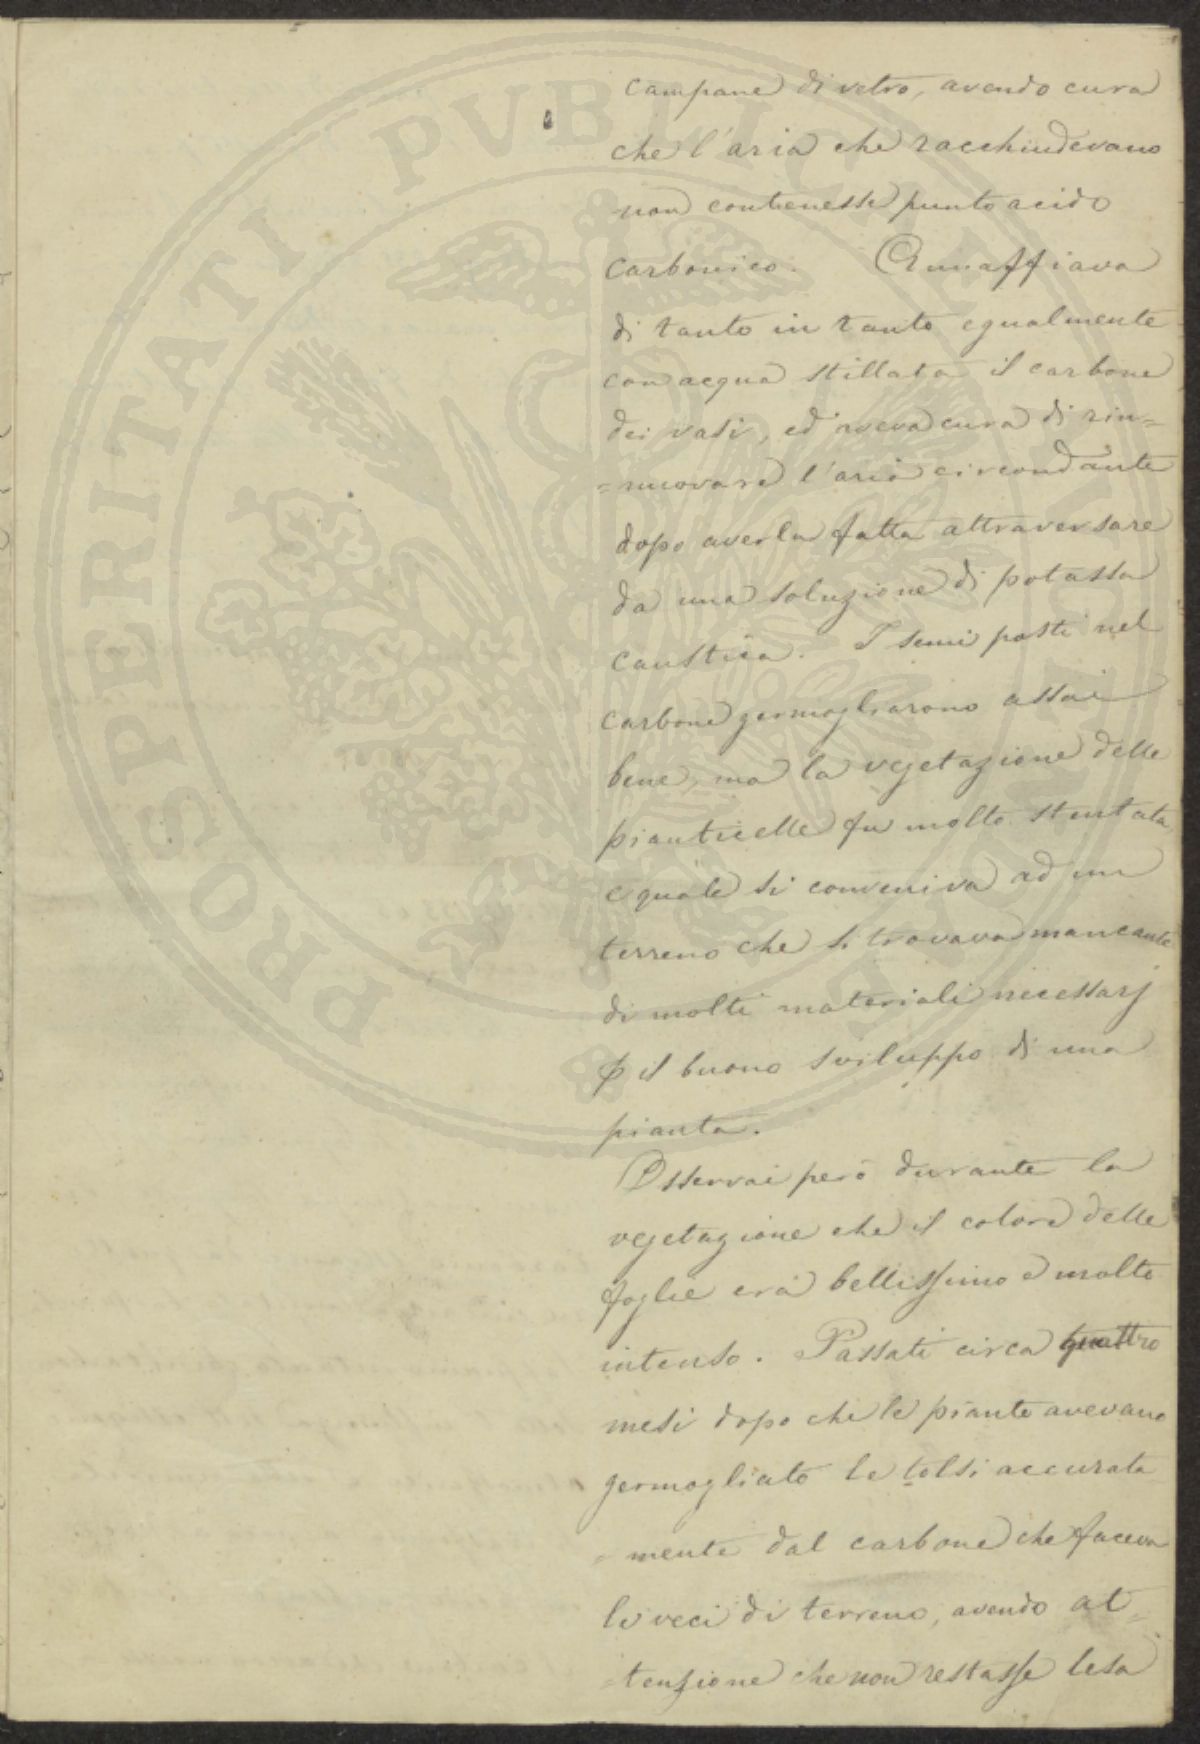 campane di vetro, avendo cura
che l'aria che racchiudevano
non contenesse punto acido
carbonico. Annaffiava
di tanto in tanto egualmente
con acqua stillata il carbone
dei vasi, ed aveva cura di rin=
=nuovare l'aria circondante
dopo averla fatta attraversare
da una soluzione di potassa
caustica. I semi posti nel
carbone germogliarono assai
bene, ma la vegetazione delle
pianticelle fu molto stentata,
e quale si conveniva ad un
terreno che si trovava mancante
di molti materiali necessarj
p il buono sviluppo di una
pianta.
Osservai però durante la
vegetazione che il colore delle
foglie era bellissimo e molto
intenso. Passati circa quattro
mesi dopo che le piante avevano
germogliato le tolsi accurata
=mente dal carbone che faceva
le veci di terreno, avendo at=
=tenzione che non restasse lesa
PROSPERITATI PVBLICAE